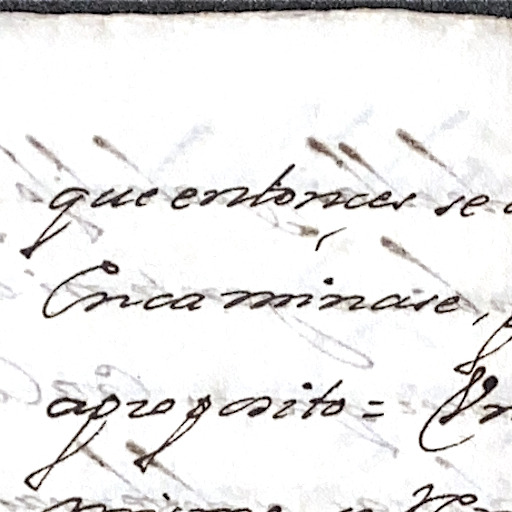 que entonces se
Encaminase,
aproposito =